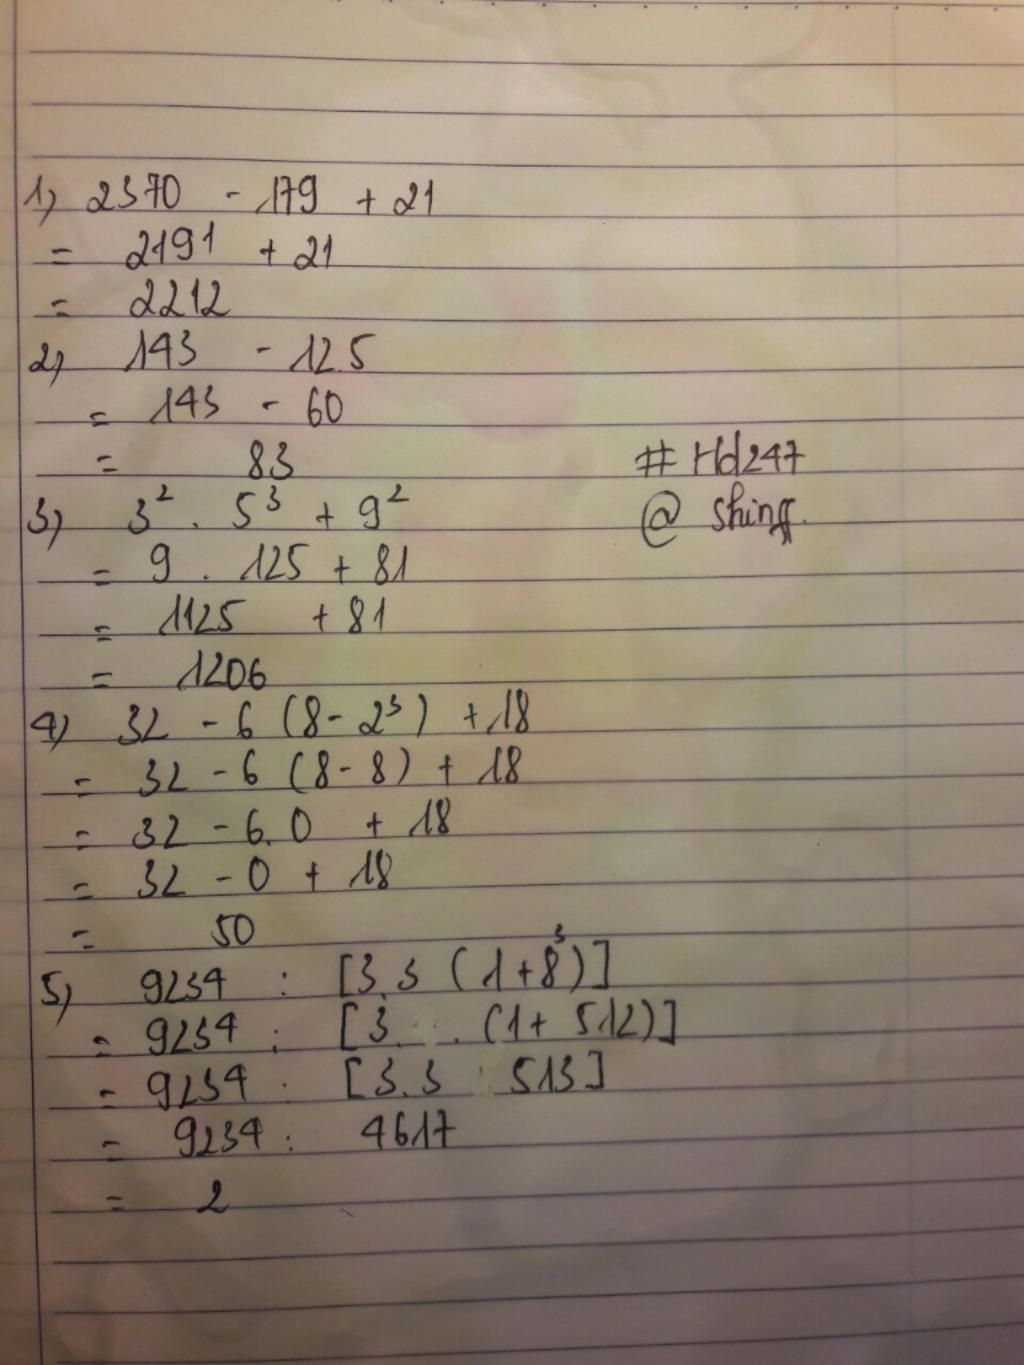 1) 2370 - 179 + 21
= 2191 + 21
= 2212
2) 143 - 12.5
= 143 - 60
= 83
# Hd247
3) 3² . 5³ + 9²
@ shinff.
= 9 . 125 + 81
= 1125 + 81
= 1206
4) 32 - 6 (8 - 2³) + 18
= 32 - 6 (8 - 8) + 18
= 32 - 6.0 + 18
= 32 - 0 + 18
= 50
5) 9234 : [3.3 (1+8³)]
= 9234 : [3. . (1+ 512)]
= 9234 : [3.3 513]
= 9234 : 4617
= 2